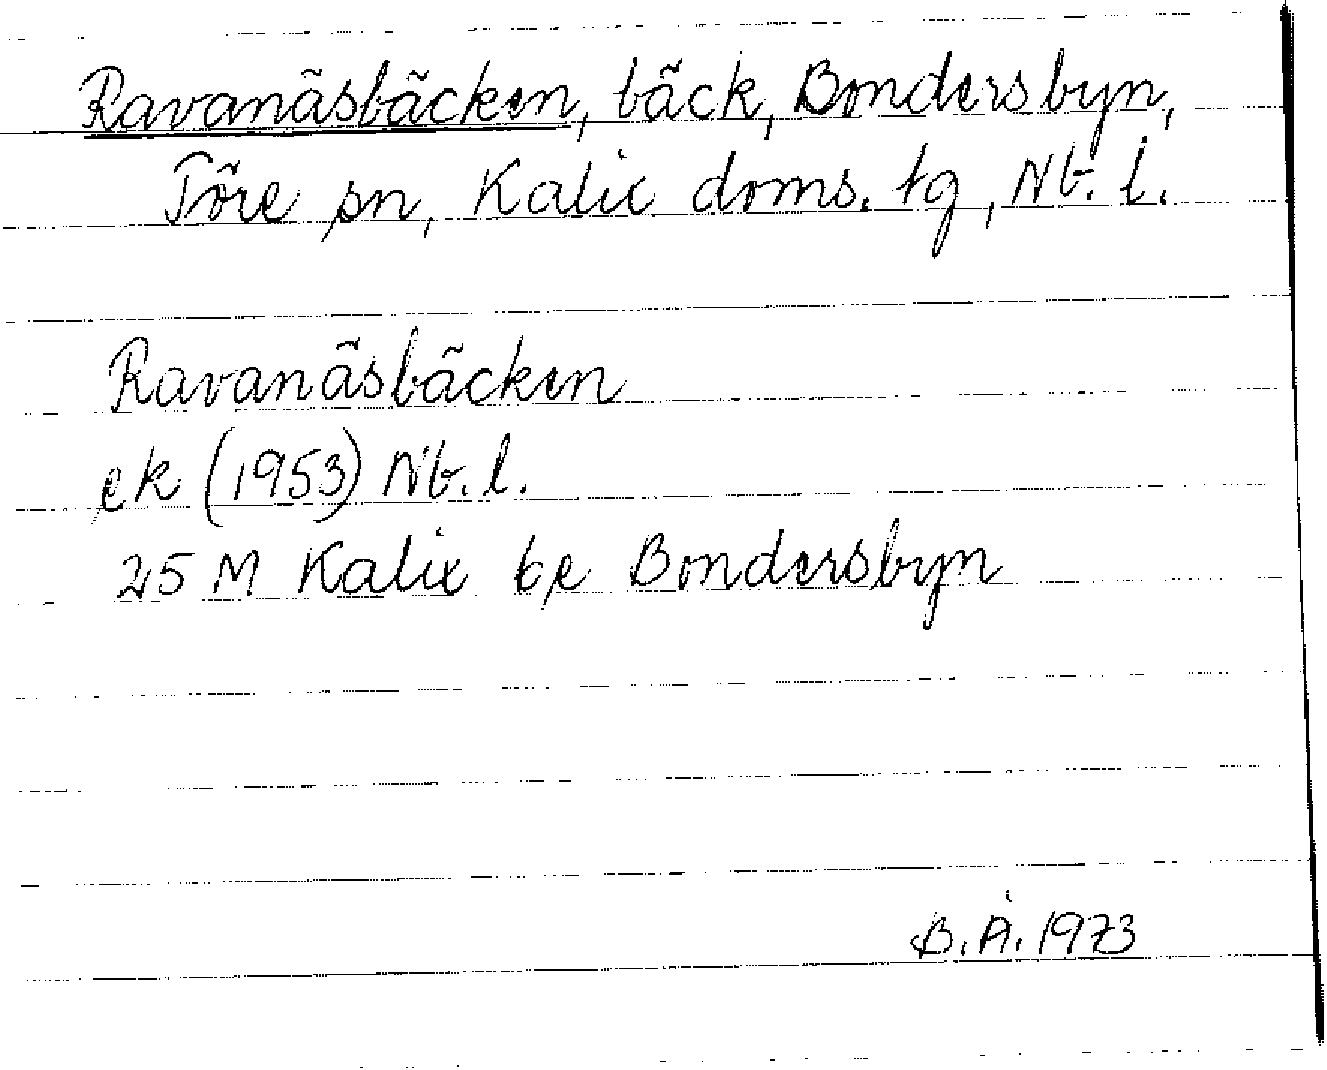 Ravanäsbäcken, bäck, Bondersbyn,
Töre sn, Kalix doms. tg, Nb. l.
Ravanäsbäcken
ek (1953) Nb. l.
25 M Kalix be Bondersbyn
B. Å. 1973